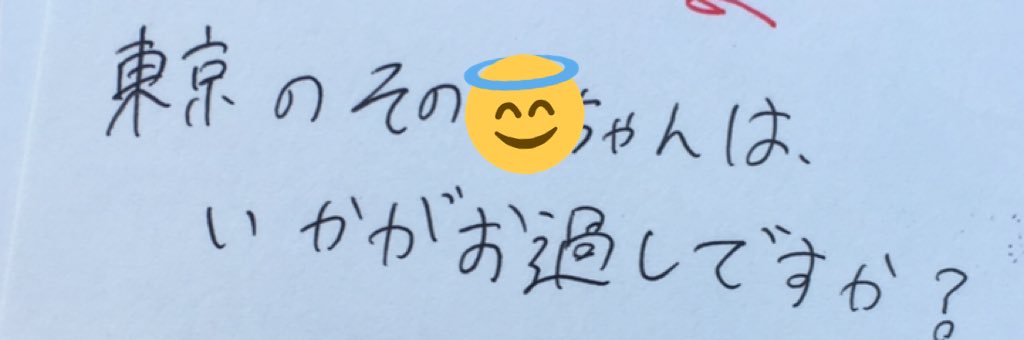 東京のその😇ちゃんは、
いかがお過しですか?